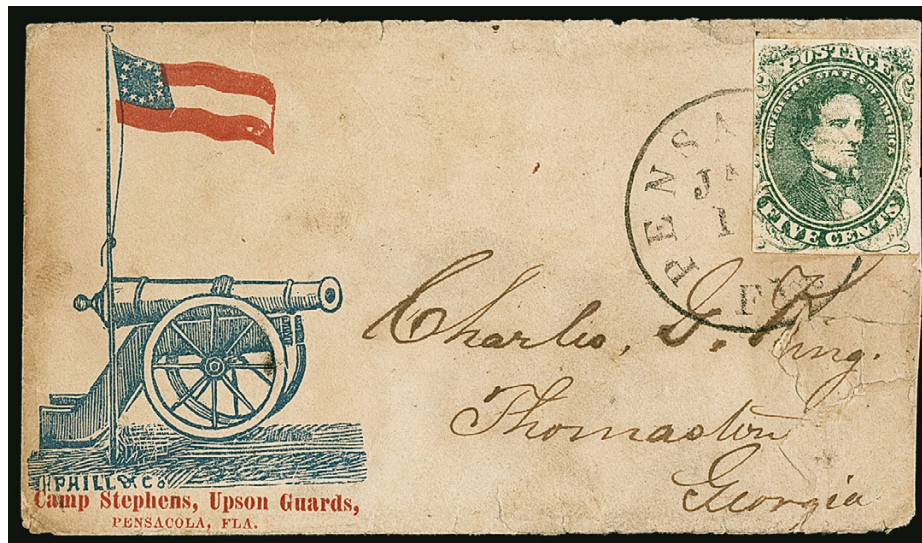 POSTAGE
CONFEDERATE STATES OF AMERICA
FIVE CENTS
PENSA
JA
1
F
Charles, G. King.
Thomaston
Georgia
PHILL & Co
Camp Stephens, Upson Guards,
PENSACOLA, FLA.